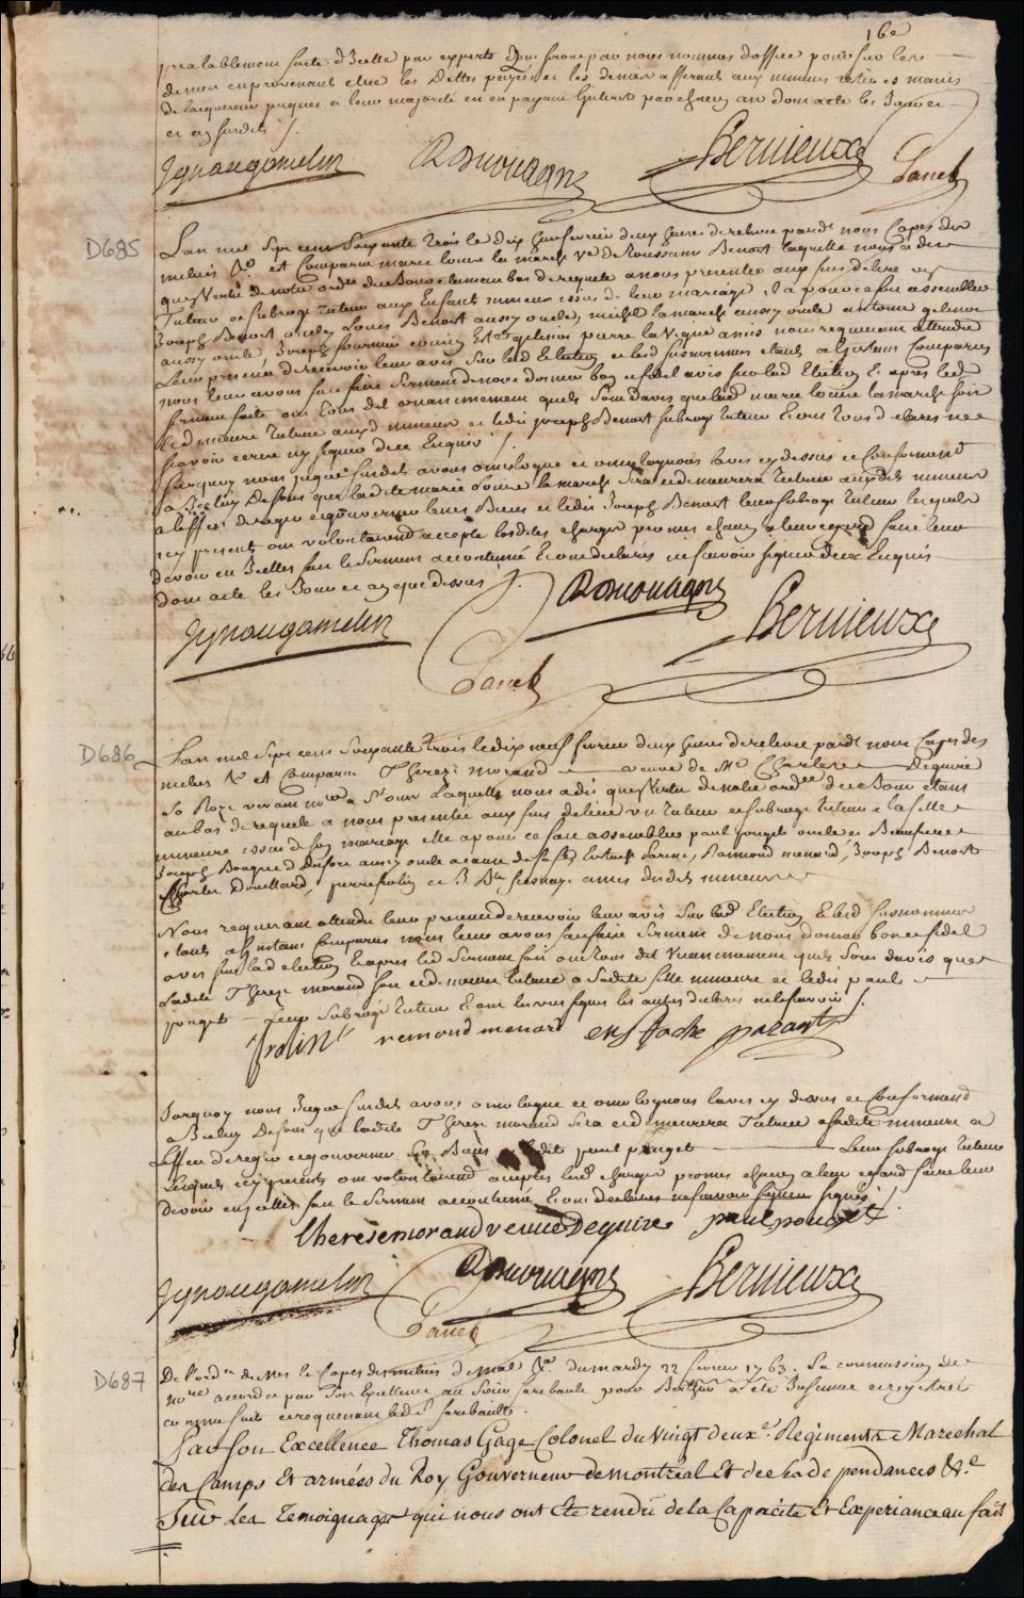 16e
prealablement faite d'Icelle par experts qui seront par nous nommés d'office pour sur les
deniers en provenant etre les dettes payées et les deniers afferant aux mineurs
jusques a leur majorité en en payant Interest par chacun an dont acte les Jour et
et an susdits /.
Ignace gamelin
R Decouagne
Bernieux
Panet
D685
L'an mil sept cent soixante trois le dix huit fevrier deux heures de relevé pardt nous Capes des
milices &c. est Comparue marie louise la marche ve de Toussaint Benoit laquelle nous a dit
qu'en Vertu de notre ordce de ce Jour etant au bas de requete a nous presentée aux fins d'elire un
Tuteur et subrogé tuteur aux Enfants mineurs issus de leur mariage, il a pour ce fait assemblés
Joseph Benoit oncle, Louis Benoit aussy oncle, michel lamarche aussy oncle antoine
aussy oncle, Joseph fournier cousin pierre la Vigne amis nous requerant attendu
Leur presence de recevoir leur avis sur lad Election et les susnommés etants a l'instant Comparus
nous leur avons fait faire serment de nous donner bon et fidel avis sur lad Election Et après led
serment fait ont tous dit unanimement quils sont davis que lad marie louise lamarche soit
et demeure Tutrice auxd mineurs et ledit joseph Benoit subrogé tuteur Et ont tous declarés ne
sçavoir ecrire ny signer de ce Enquis /.
Surquoy nous juges susdits avons omologué et omologuons lavis cy dessus et Conformemt
a Iceluy Disons que ladite marie louise lamarche sera et demeurera Tutrice auxdits mineurs
a l'effet de regir et gouverner leurs Biens et ledit Joseph Benoit leur subrogé tuteur lesquels
icy presents ont volontairemt accepté lesdites charges promis chacun a leur egard faire leur
devoir en Icelles fait le serment accoutumé Et ont declarés ne sçavoir signer de ce Enquis
dont acte les Jour et an que dessus /.
R Decouagne
Ignace gamelin
Bernieux
Panet
D686
L'an mil sept cens soixante trois le dix neuf fevrier deux heures de relevé pardt nous Capes des
milices &c est Comparue Therese morand veuve de Mr Charles Dequire
So Roze vivant Laquelle nous a dit qu'en Vertu de notre ordce de ce Jour etant
au bas de requete a nous presentée aux fins delire un tuteur et subrogé tuteur a la fille
mineure issue de son mariage elle a pour ce fait assemblés paul pouget oncle
Joseph aussy oncle a cause de sa fe Eustache Parent, Raimond menard, Joseph Benoit
Charles Douillard, pierre frolin et J. Bte amis dudits mineurs
Nous requerant attendu leur presence de recevoir leur avis sur lad Election Et les susnommés
etants a l'instant Comparus nous leur avons fait faire serment de nous donner bon et fidel
avis sur lad election Et apres led serment fait ont tous dit unanimement quils sont davis que
Ladite Therese morand soit et demeure tutrice a sadite fille mineure et ledit paul
pouget leur subrogé tuteur Et ont les uns signés les autres declarés ne le sçavoir /.
frolint remond menard enstache parant
Surquoy nous Juges susdits avons omologué et omologuons lavis cy dessus et Conformemt
a Iceluy Disons que ladite Therese morand sera et demeurera Tutrice a sadite mineure a
Leffet de regir et gouverner Ses Biens et ledit paul pouget Leur subrogé tuteur
Lesquels icy presents ont volontairemt acceptés lesd charges promis chacun a leur egard faire leur
devoir en jcelles fait le serment accoutumé Et ont declarés ne sçavoir signer signés /.
theresemorand veuve Dequire paul pouget
Ignace gamelin
R Decouagne
Bernieux
Panet
D687
De l'ordre de Mrs les Capes des milices de Mal &c. du mardy 22 fevrier 1763. La commission de
nore accordée par son Excellence au Sieur farebault pour Berthier a été Insinuée et registrée
comme suit ce requerant led Sr farebault.
Par son Excellence Thomas Gage Colonel du Vingt deuxe. Regiment Marechal
des Camps Et armées du Roy Gouverneur de montréal Et de ses dependances &c
Sur les Temoignages qui nous ont Ete rendu de la Capacite Et Experiance au fait